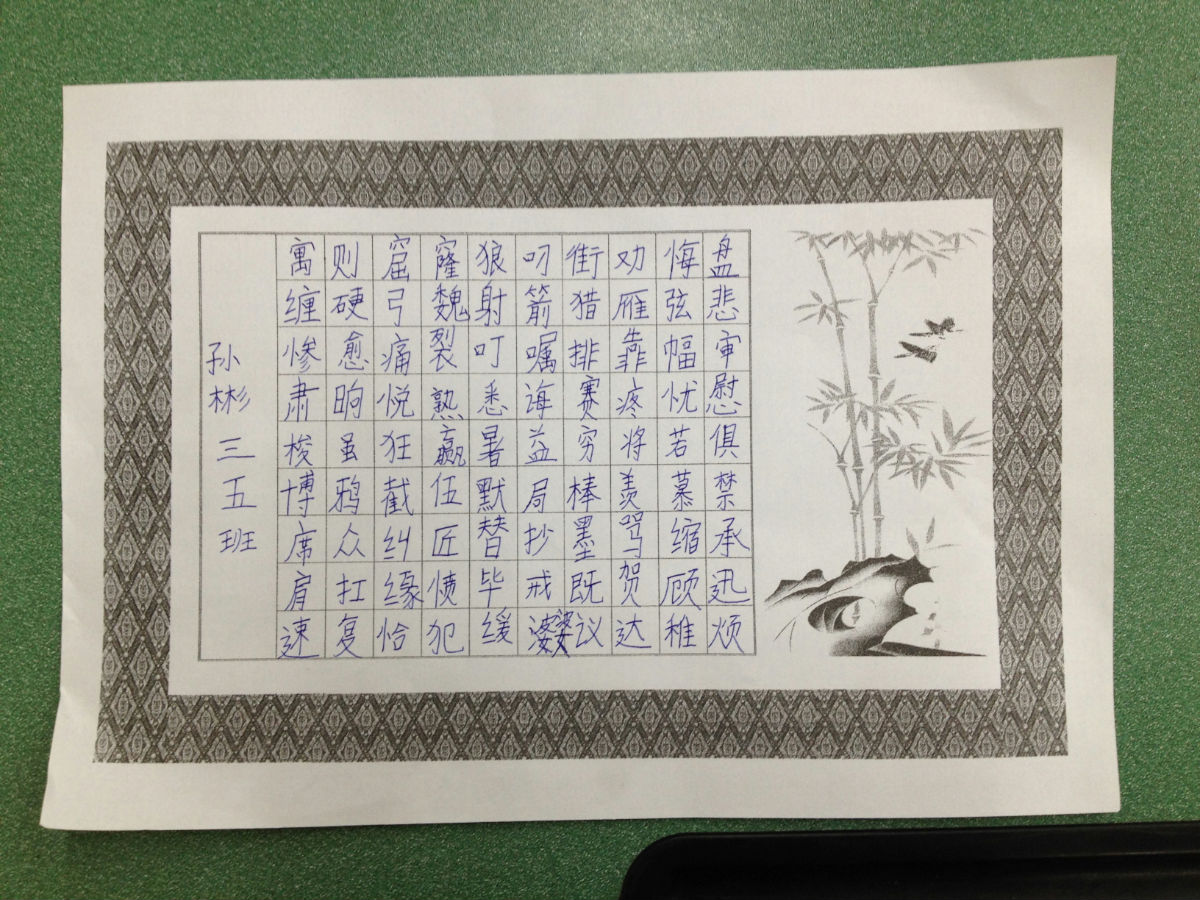 孙彬三五班
寓则窟窿狼叼街劝悔盘
缠硬弓魏射箭猎雁弦悲
惨愈痛裂叮嘱排靠幅审
肃晌悦熟悉诲赛疼忧慰
梭虽狂赢暑益穷将若俱
博鸦截伍默局棒羡慕禁
席众纠匠替抄墨骂缩承
肩扛缘愤毕戒既贺顾迅
速复恰犯缓婆议达稚烦